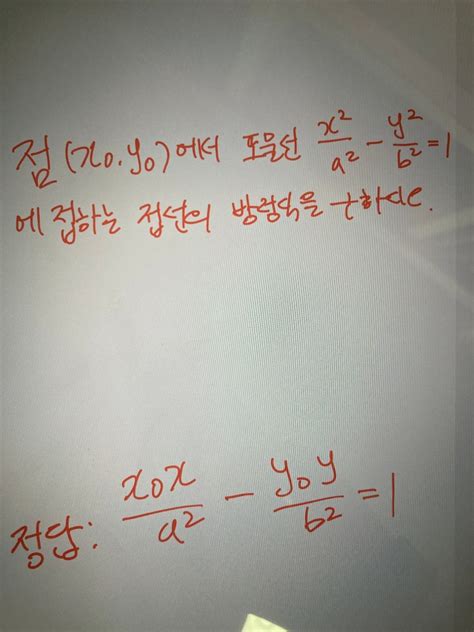 점 (x₀, y₀)에서 포물선 x²/a² - y²/b² = 1
에 접하는 접선의 방정식을 구하시오.
정답: x₀x/a² - y₀y/b² = 1